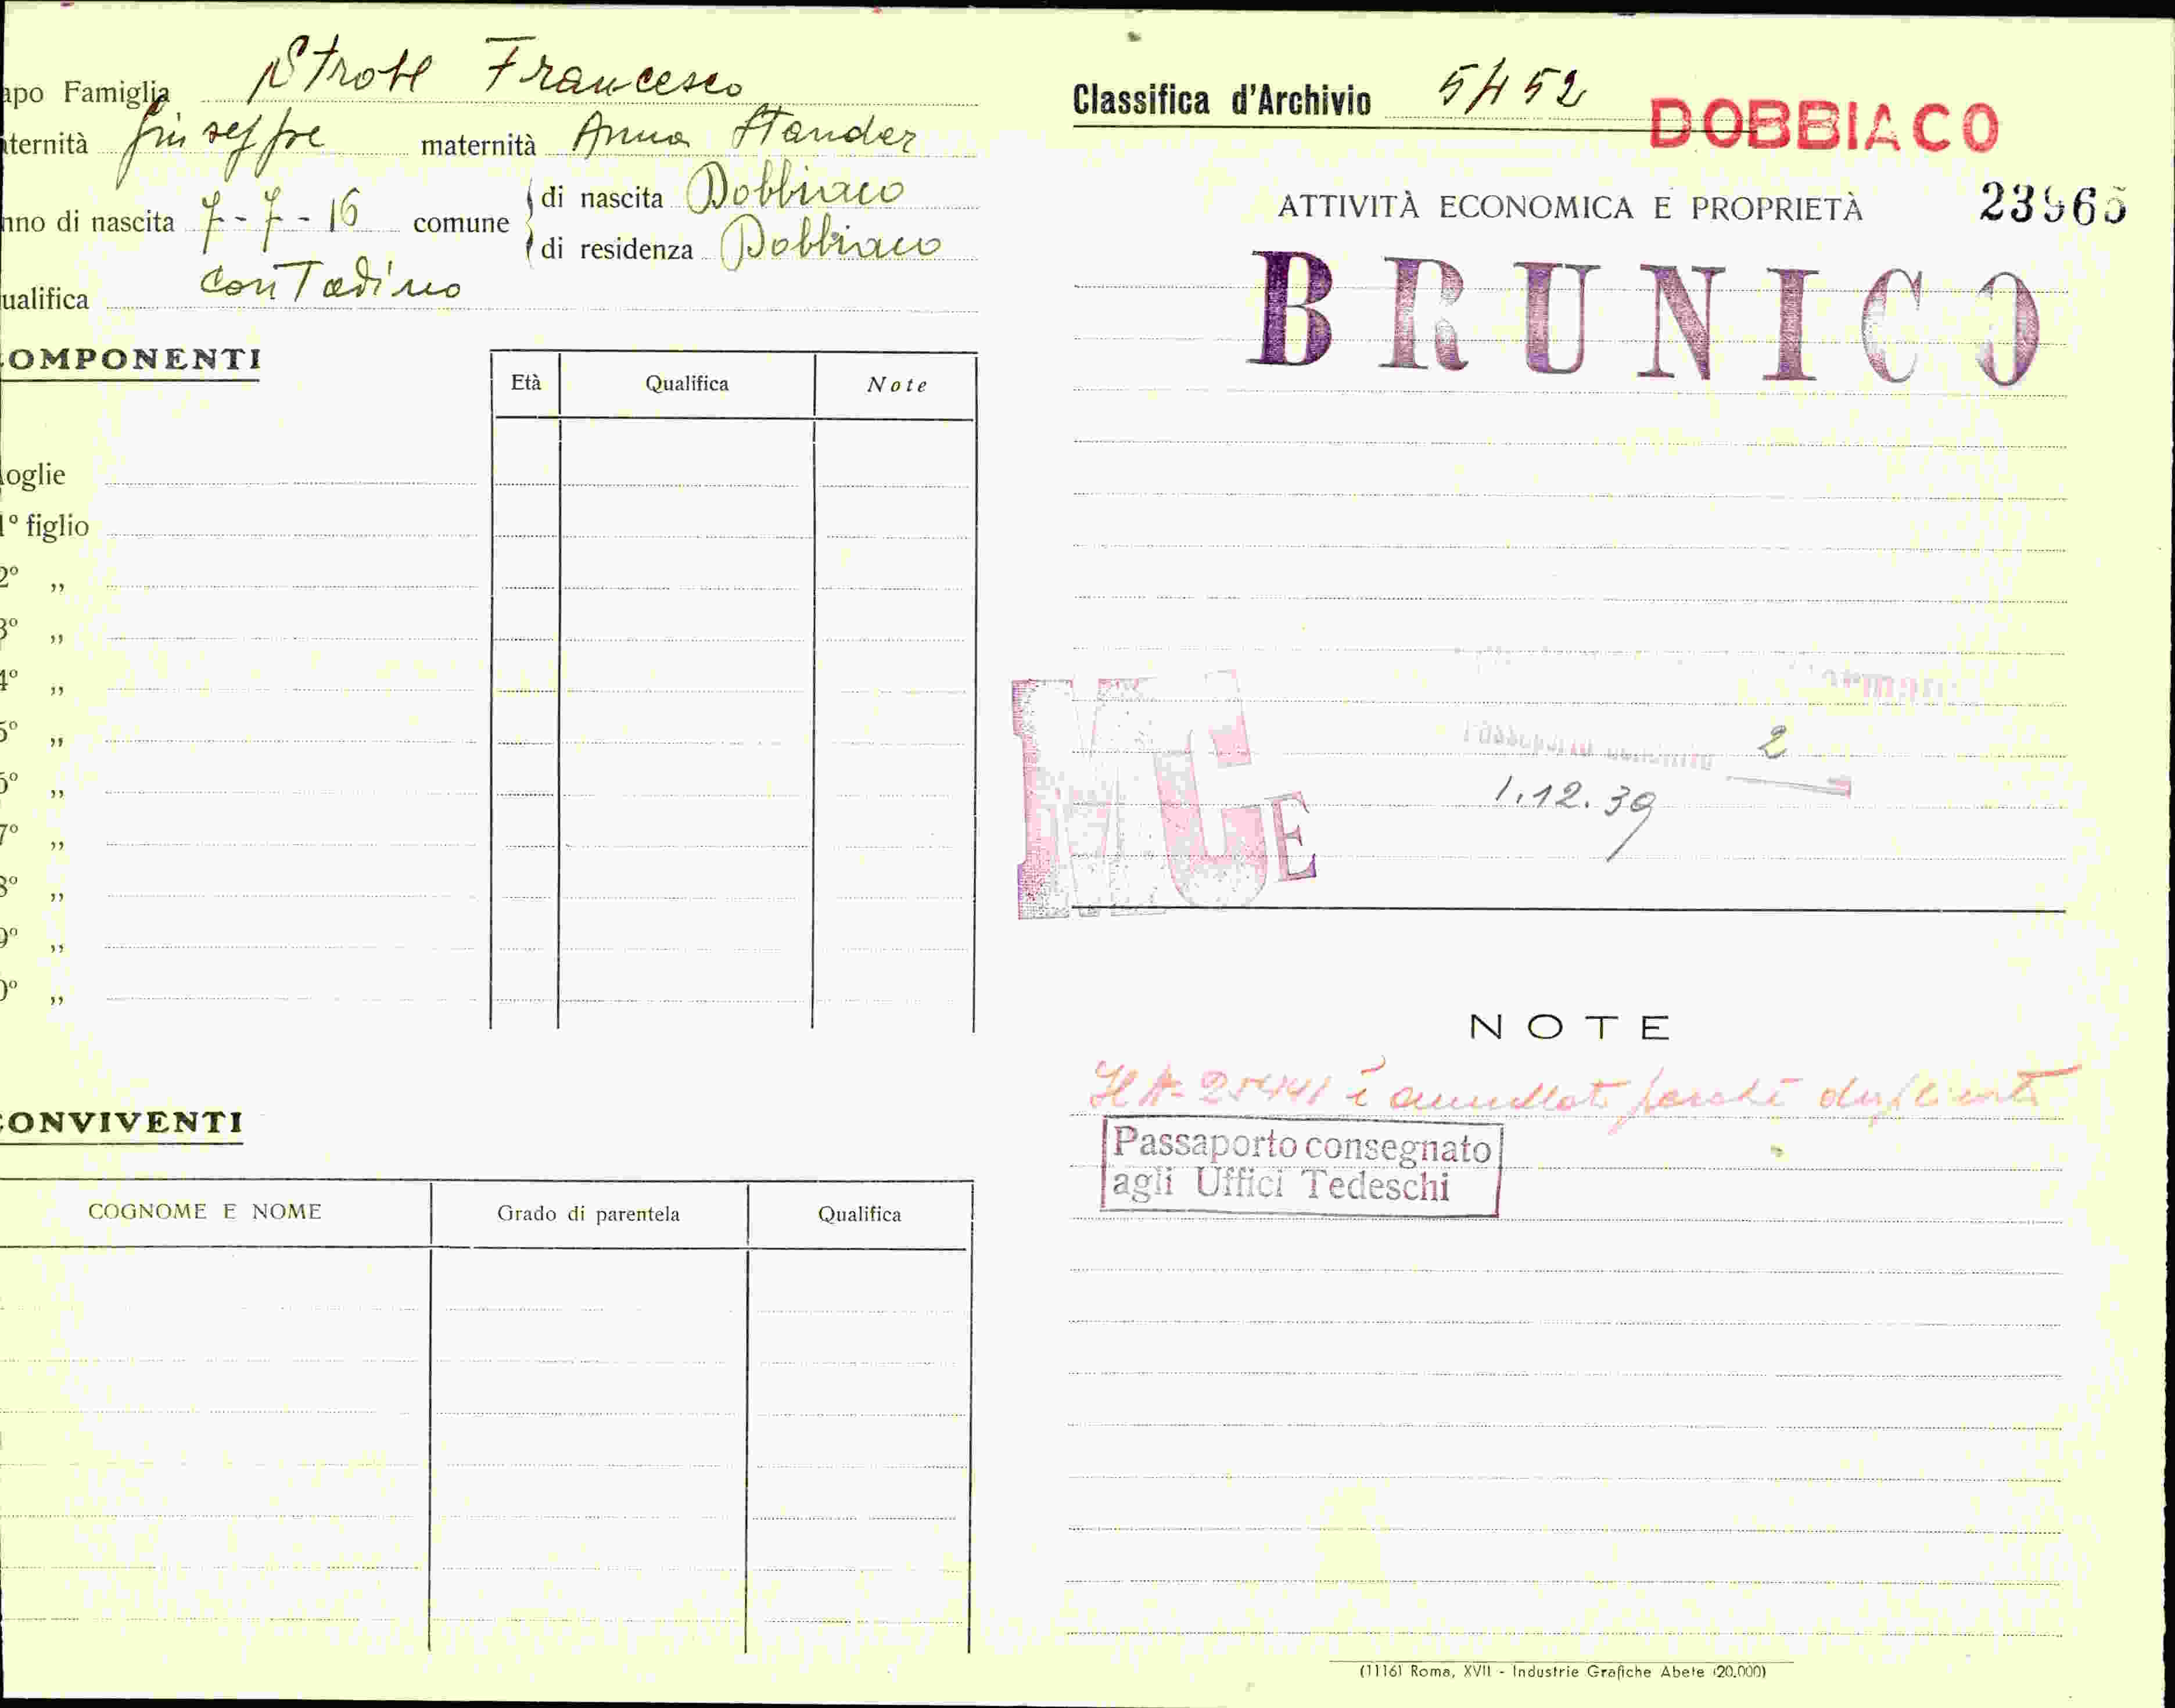 apo Famiglia Strobl Francesco
aternità Giuseppe maternità Anna Stander
nno di nascita 7-7-16 comune di nascita Dobbiaco
di residenza Dobbiaco
ualifica contadino
COMPONENTI
Età Qualifica Note
oglie
1º figlio
2º „
3º „
4º „
5º „
6º „
7º „
8º „
9º „
0º „
CONVIVENTI
COGNOME E NOME Grado di parentela Qualifica
Classifica d'Archivio 5452
DOBBIACO
ATTIVITÀ ECONOMICA E PROPRIETÀ 23965
BRUNICO
2
1.12.39
MCE
NOTE
è annullato perchè duplicato
Passaporto consegnato
agli Uffici Tedeschi
(1116) Roma, XVII - Industrie Grafiche Abete (20.000)